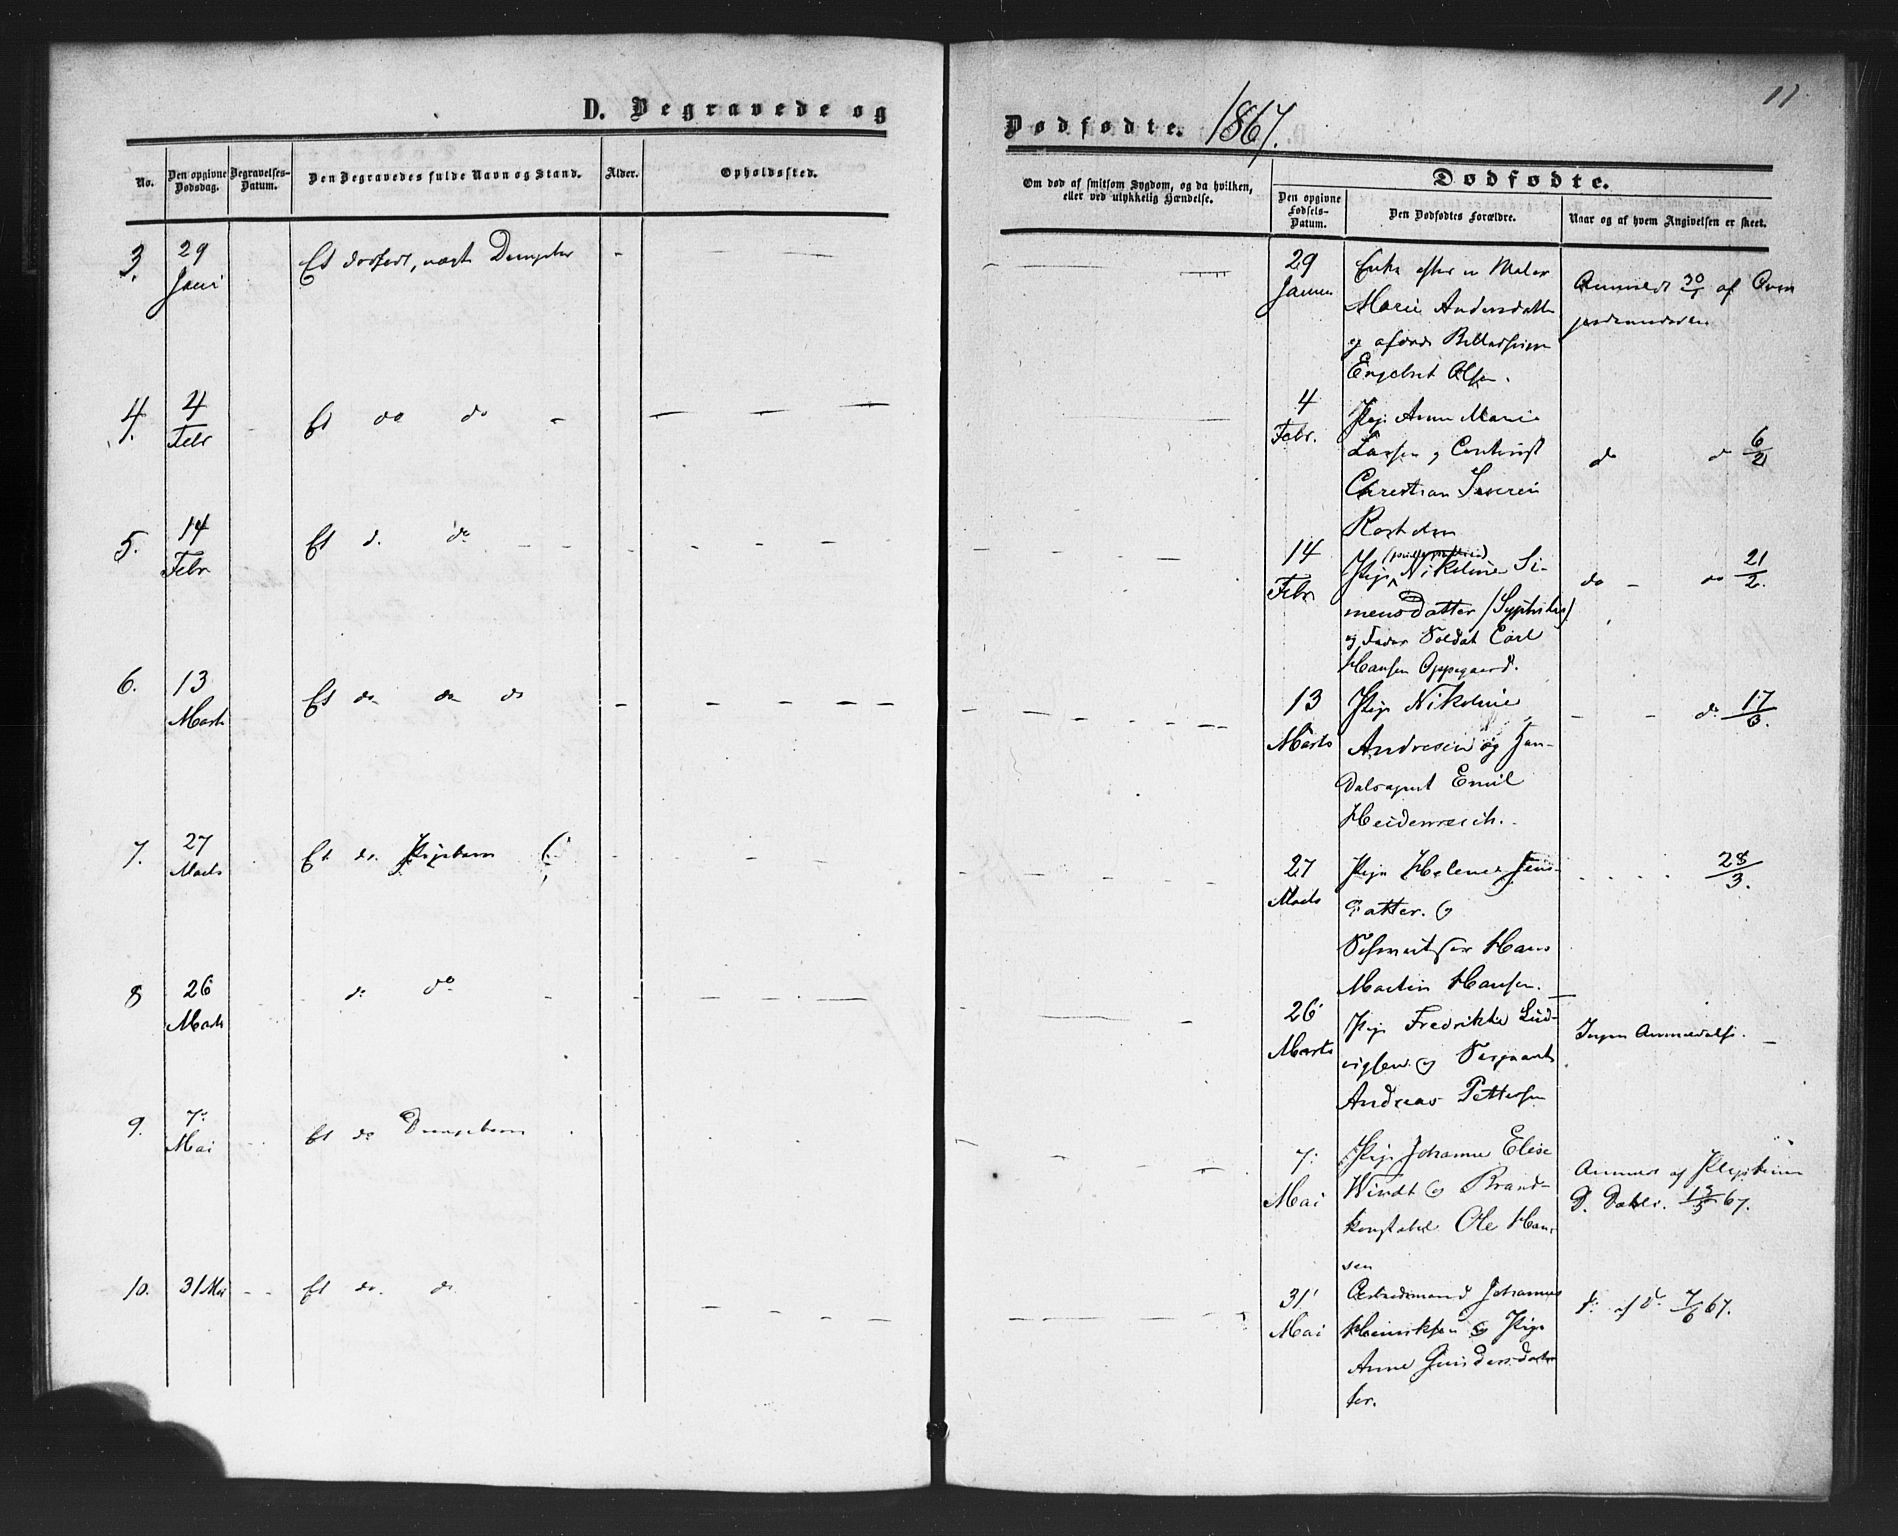 11
D. Begravede og
Dødfødte. 1867.
No.
Den opgivne Dødsdag.
Begravelses-Datum.
Den Begravedes fulde Navn og Stand.
Alder.
Opholdssted.
Om død af smitsom Sygdom, og da hvilken,
eller ved ulykkelig Hændelse.
Dødfødte.
Den opgivne Fødsels-Datum.
Den Dødfødtes Forældre.
Naar og af hvem Angivelsen er skeet.
3.
29
Et dødfødt, uægte
29
Enke efter en Maler
Marie Andersdatter
Engebret Olsen.
Anmeldt 30/1 af
4.
4
Febr
Et do do
4
Febr.
Pige Anne Marie
Larsen og
Christian
do do 6/2
5.
14
Febr
Et d. do
14
Febr
Pige Nikoline Si-
mensdatter (Syphilis)
og Soldat Carl
Hansen Oppegaard.
do do 21/2.
6.
13
Marts
Et do do do
13
Marts
Pige Nikoline
Andresen og Han-
delsagent Emil
Heidenreich.
do 17/3.
7.
27
Marts
Et do. Pigebarn
27
Marts
Pige Helene Jens-
datter. og
Hans
Martin Hansen.
28/3.
8
26
Marts
do do
26
Marts
Pige Fredrikke Lud-
vigsen og Sergeant
Andreas Pettersen
Ingen Anmeldelse.
9.
7.
Mai
Et do Drengebarn
7.
Mai
Pige Johanne Elise
Windt og Brand-
konstabel Ole Han-
sen
af
D. Dahl. 67.
10.
31 Mai
Et do. do
31
Mai
Arbeidsmand Johannes
Henriksen og Pige
Anne Gundersdat-
ter.
d. af d. 7/6 67.